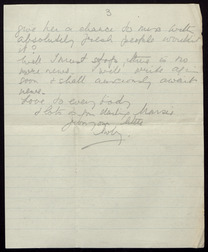 3
give her a chance to mix with
absolutely fresh people wouldn't
it?
Well I must stop, there is no
more news. Will write again
soon & shall anxiously await
news.
Love to everybody
& lots to you
from your